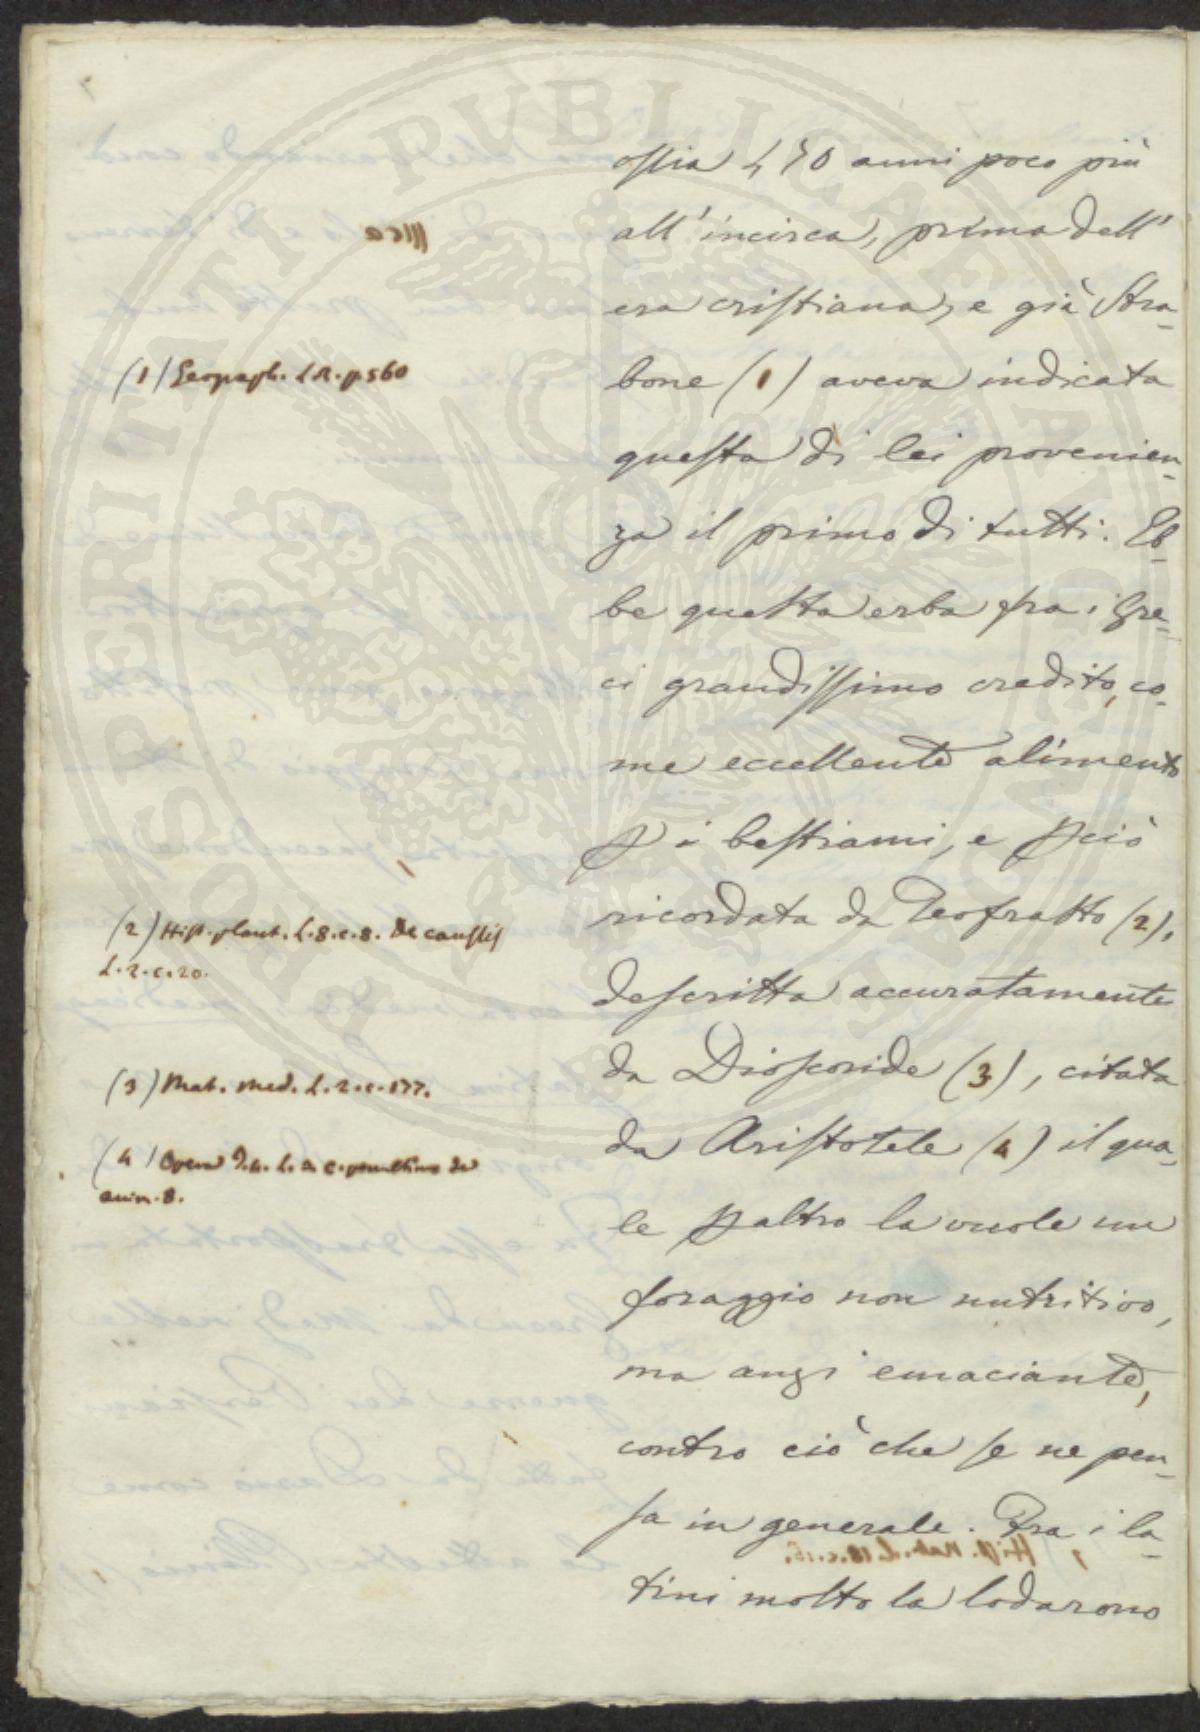 ossia 470 anni poco più
all'incirca, prima dell'
era cristiana, e già Stra-
bone (1) aveva indicata
questa di lei provenien-
za il primo di tutti. Eb-
be questa erba fra i Gre-
ci grandissimo credito, co-
me eccellente alimento
p i bestiami, e pciò
ricordata da Teofrasto (2),
descritta accuratamente
da Dioscoride (3), citata
da Aristotele (4) il qua-
le paltro la vuole un
foraggio non nutritivo,
ma anzi emaciante,
contro ciò che se ne pen-
sa in generale. Fra i la-
tini molto la lodarono
(1) Geograph. L. p. 560
(2) Hist. plant. L. 8. c. 8. De caussis
L. 2. c. 20.
(3) Mat. med. L. 2. c. 177.
(4) Opera
anim. 8.
PROSPERITATI PUBLICAE AUGENDAE